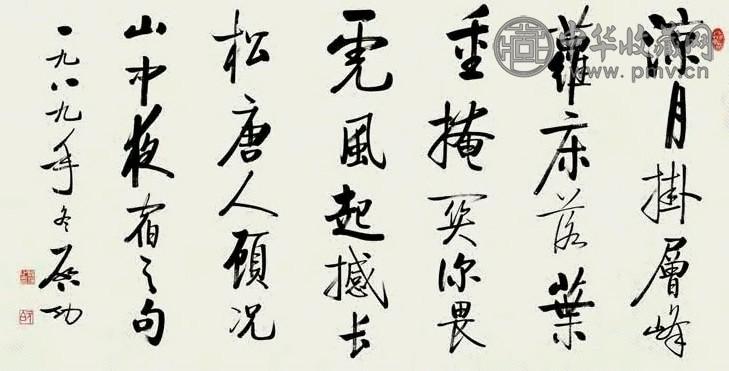 涼月掛層峰
蘿床落葉
重掩関深畏
虎風起撼长
松唐人顧况
山中夜宿之句
一九八九年冬启功
中华收藏网
www.pmv.cn